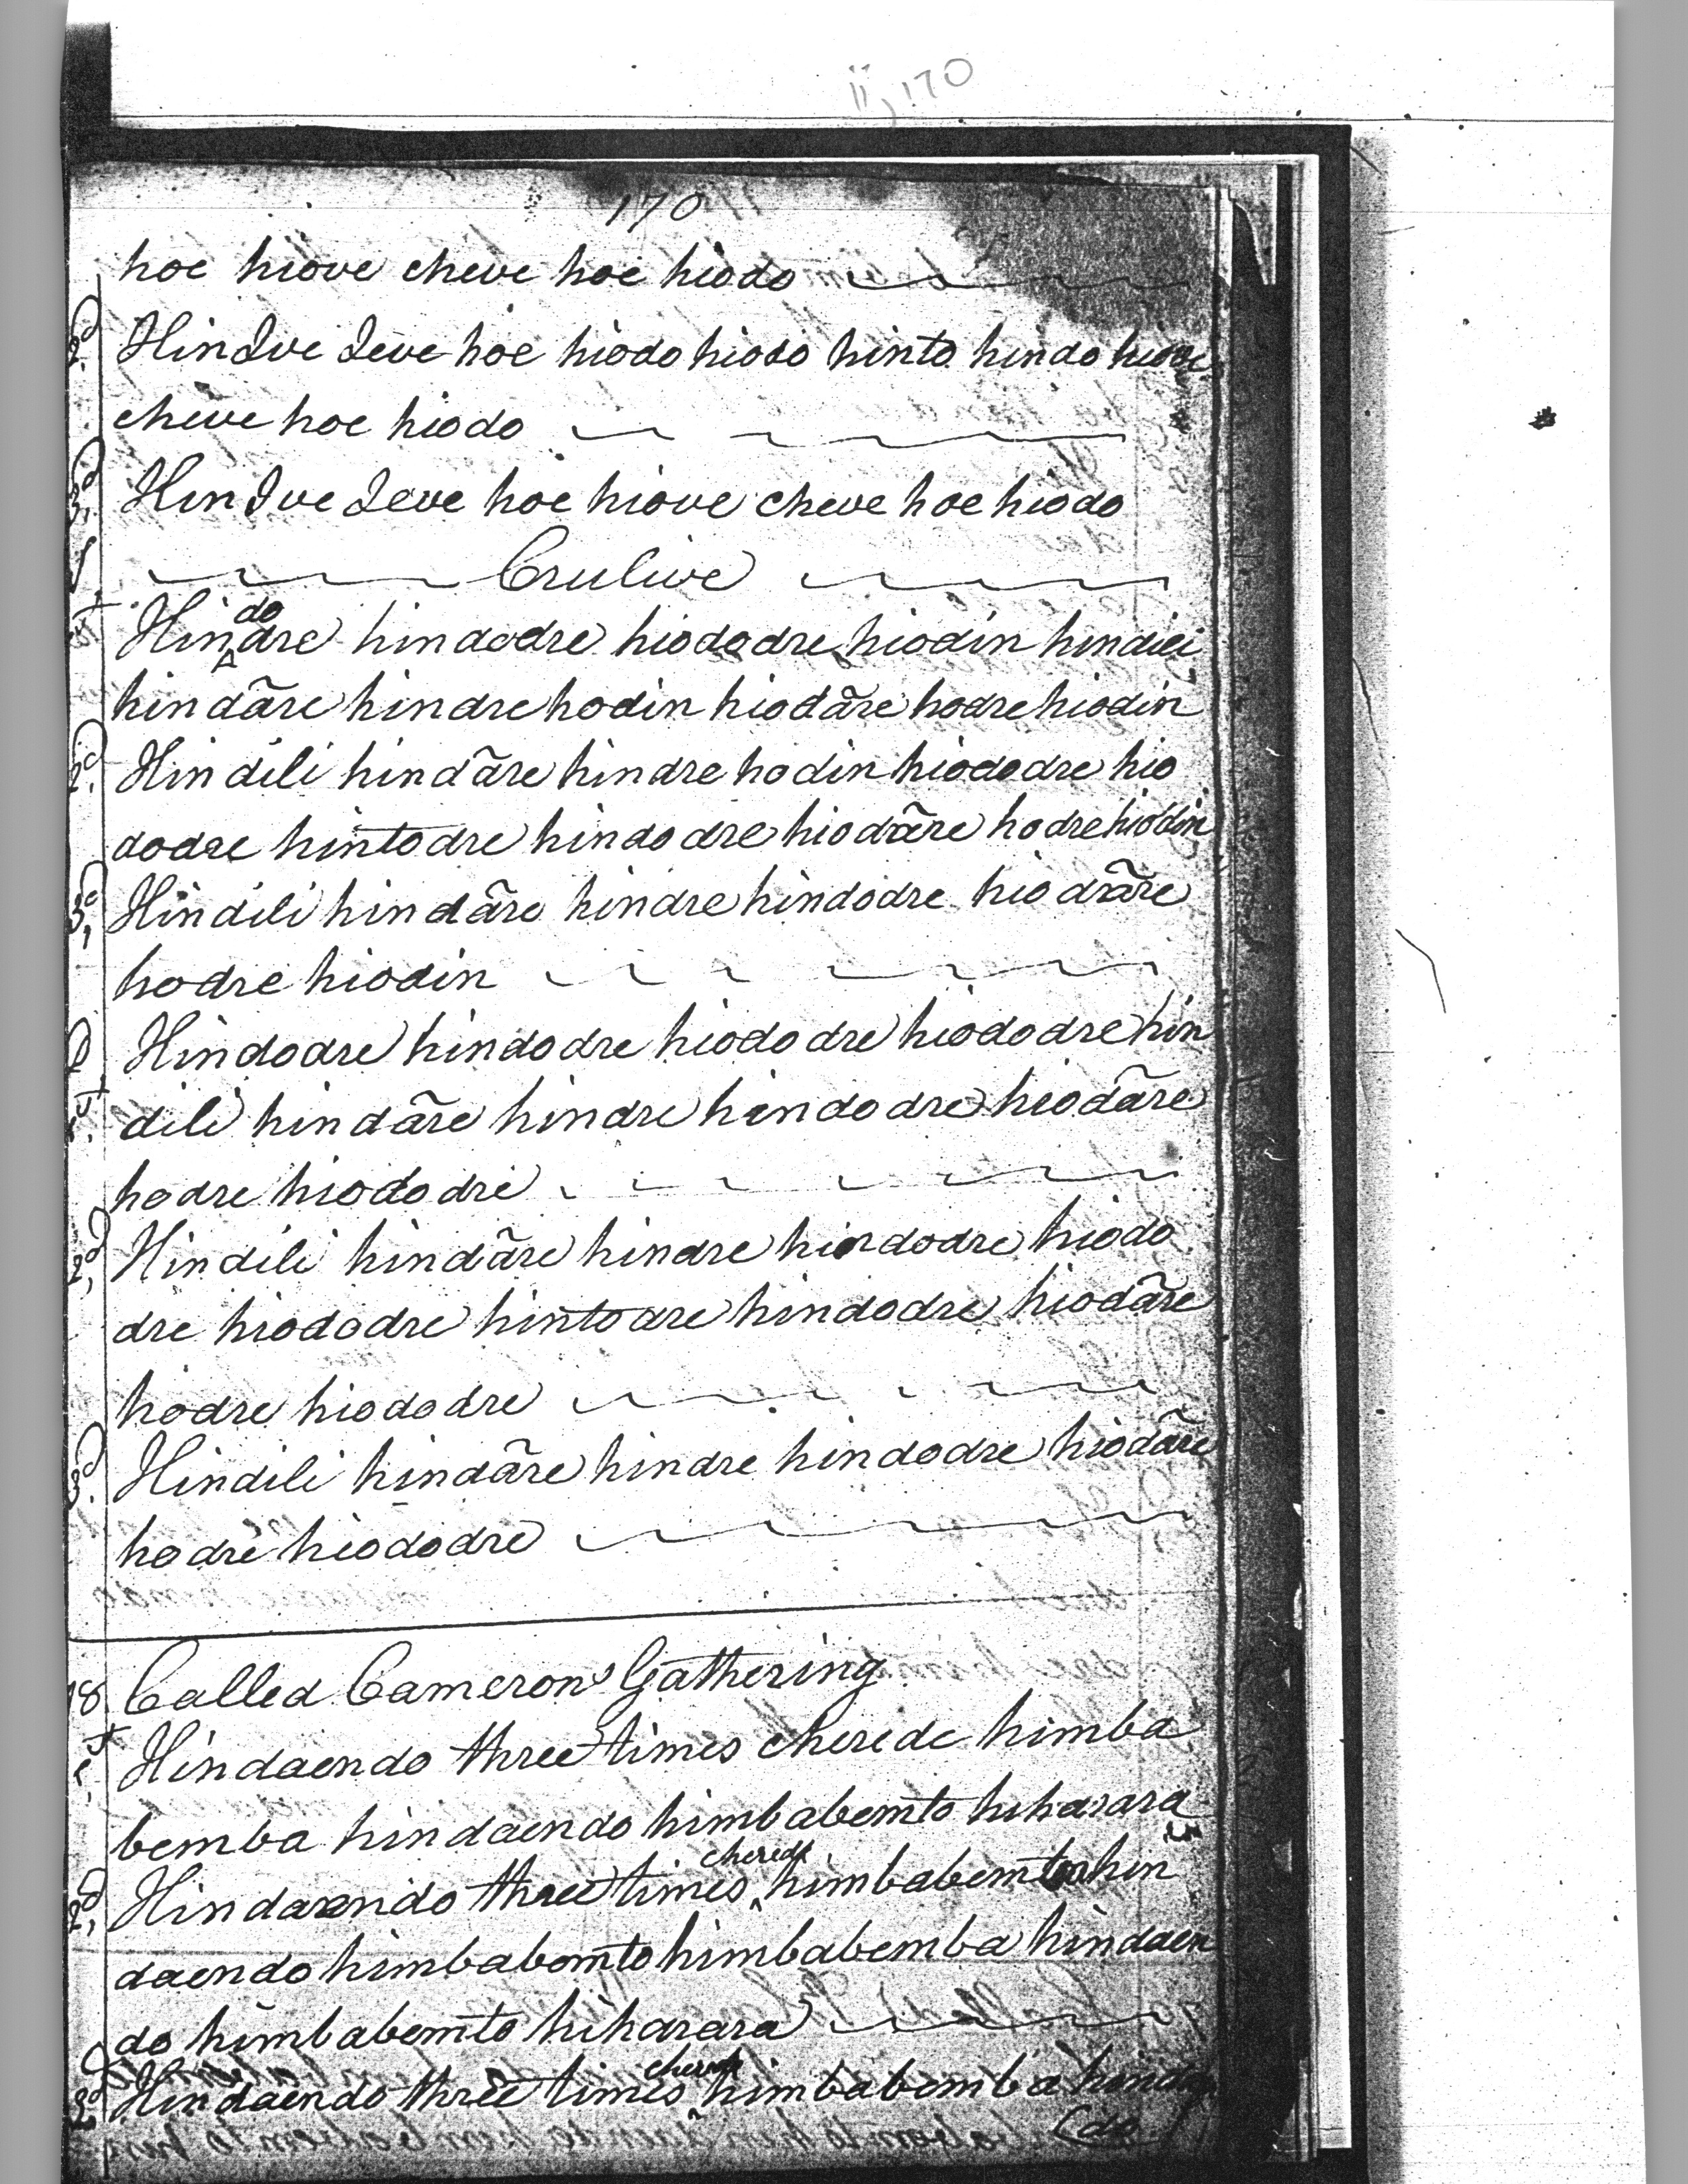 ii, 170
170
hoe hiove cheve hoe hiodo
2d. HinIve Ieve hoe hiodo hiodo hinto hindo hiove
cheve hoe hiodo
3d. HinIve Ieve hoe hiove cheve hoe hiodo
Crulive
do
1st Hindre hindodre hiododre hiodin hindili
hindãre hindre hodin hiodãre hodre hiodin
2d. Hindili hindãre hindre hodin hiododre hio
dodre hintodre hindodre hiodãre hodre hiodin
3d, Hindili hindãre hindre hindodre hiodrãre
hodre hiodin
D Hindodre hindodre hiododre hiododre hin
1st. dili hindãre hindre hindodre hiodãre
hodre hiododre
2d, Hindili hindãre hindre hindodre hiodo
dre hiododre hintodre hindodre hiodãre
hodre hiododre
3d. Hindili hindãre hindre hindodre hiodãre
hodre hiododre
18 Called Camerons Gathering
1st Hindaendo three times cherede himba
bemba hindaendo himbabemto hiharara
cherede
2d, Hindaendo three times himbabemto hin
daendo himbabemto himbabemba hindaen
do himbabemto hiharara
cherede
3d Hindaendo three times himbabemba hindaen
(do